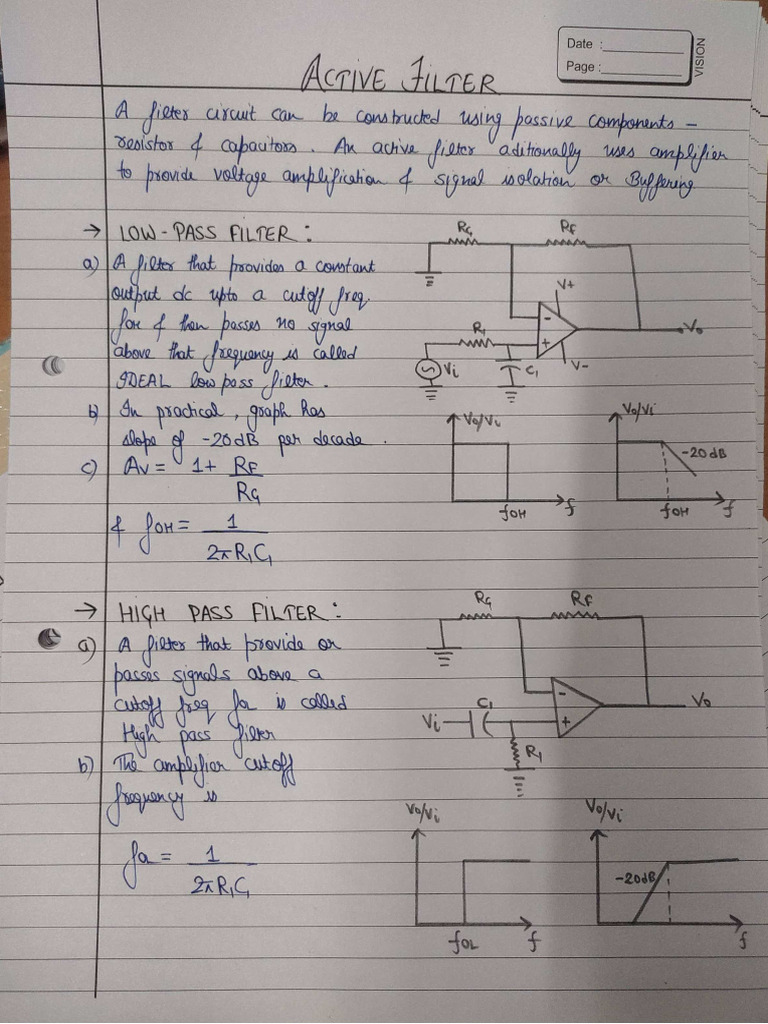 Date :
Page :
VISION
ACTIVE FILTER
A filter circuit can be constructed using passive components -
resistor & capacitors. An active filter aditionally uses amplifier
to provide voltage amplification & signal isolation or Buffering
→ LOW-PASS FILTER :
a) A filter that provides a constant
output dc upto a cutoff freq.
foH & then passes no signal
above that frequency is called
IDEAL low pass filter.
b) In practical, graph has
slope of -20dB per decade.
c) Av = 1 + RF
RG
& foH = 1
2πR1C1
RG
RF
V+
-
+
V-
Vo
R1
C1
Vi
Vo/Vi
foH
f
Vo/Vi
-20dB
foH
f
→ HIGH PASS FILTER :
a) A filter that provide or
passes signals above a
cutoff freq fa is called
High pass filter
b) The amplifier cutoff
frequency is
fa = 1
2πR1C1
RG
RF
-
+
Vo
Vi
C1
R1
Vo/Vi
foL
f
Vo/Vi
-20dB
f